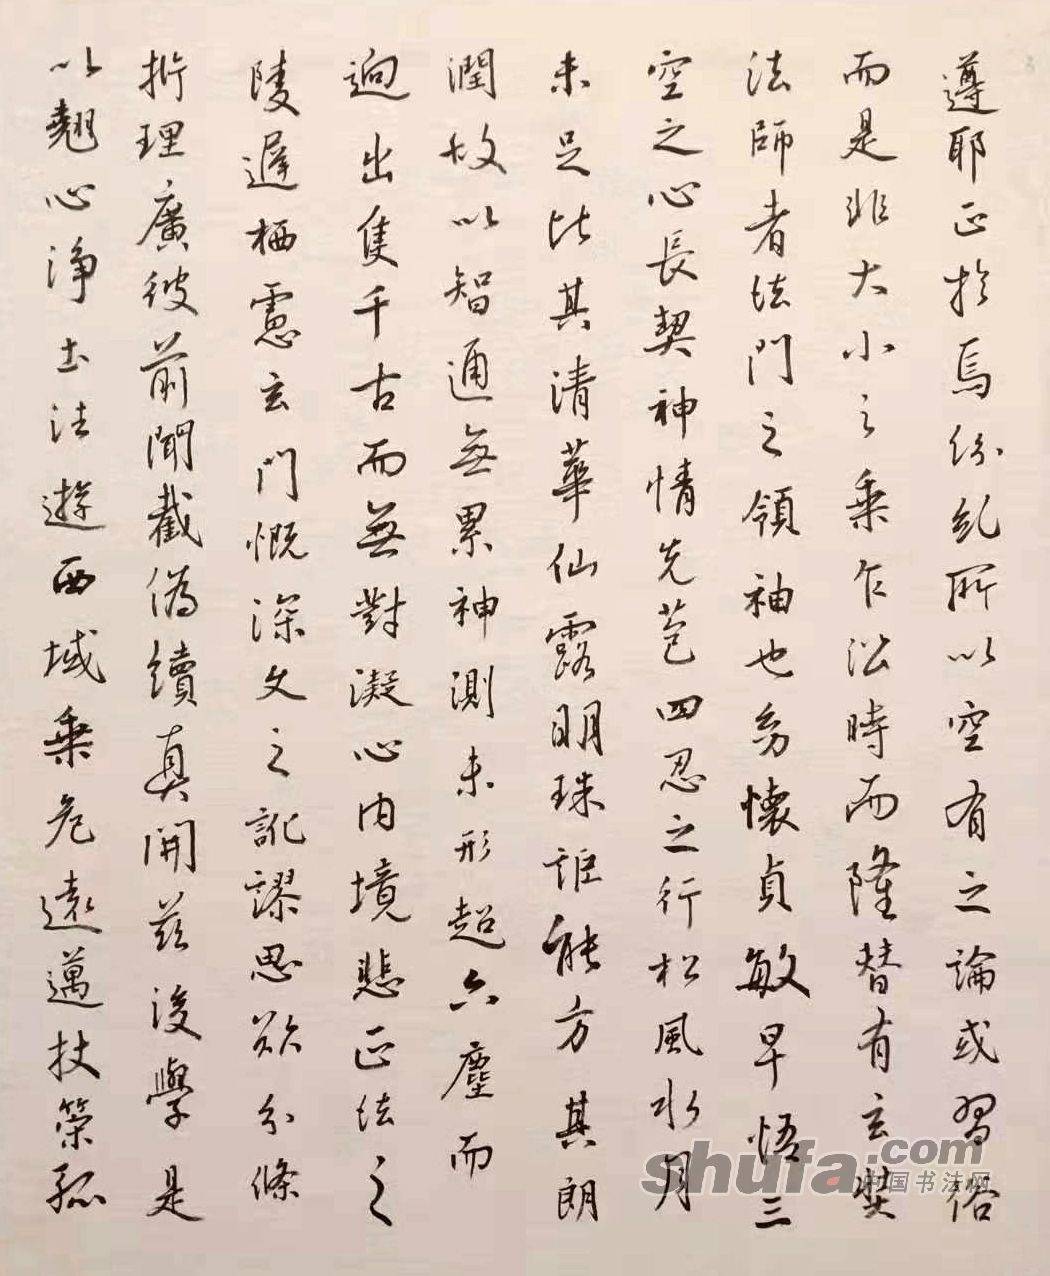 遵耶正於焉紛糺所以空有之論或習俗
而是非大小之乘乍沿時而隆替有玄奘
法師者法門之領袖也幼懷貞敏早悟三
空之心長契神情先苞四忍之行松風水月
未足比其清華仙露明珠詎能方其朗
潤故以智通無累神測未形超六塵而
迥出隻千古而無對凝心內境悲正法之
陵遲栖慮玄門慨深文之訛謬思欲分條
析理廣彼前聞截偽續真開茲後學是
以翹心淨土法遊西域乘危遠邁杖策孤
shufa.com
中国书法网